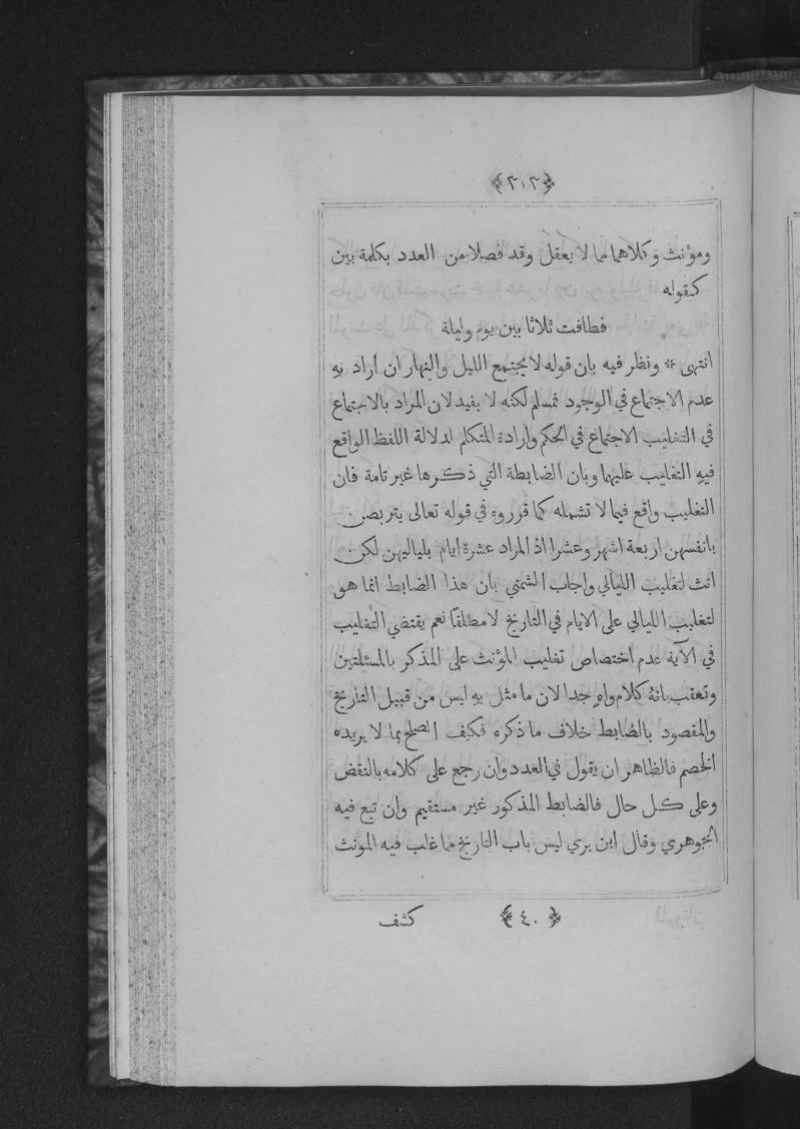 ﴿٣١٣﴾
ومؤنث وكلاهما مما لا يعقل وقد فصلا من العدد بكلمة بين
كقوله
فطافت ثلاثا بين يوم وليلة
انتهى * ونظر فيه بان قوله لا يجتمع الليل والنهار ان اراد به
عدم الاجتماع في الوجود فمسلم لكنه لا يفيد لان المراد بالاجتماع
في التغليب الاجتماع في الحكم وارادة المتكلم لدلالة اللفظ الواقع
فيه التغليب عليهما وبان الضابطة التي ذكرها غير تامة فان
التغليب واقع فيما لا تشمله كما قرروه في قوله تعالى يتربصن
بانفسهن اربعة اشهر وعشرا اذ المراد عشرة ايام بلياليهن لكن
انث لتغليب الليالي واجاب الشمني بان هذا الضابط انما هو
لتغليب الليالي على الايام في التاريخ لا مطلقا نعم يقتضي التغليب
في الآية عدم اختصاص تغليب المؤنث على المذكر بالمسئلتين
وتعقب بانه كلام واه جدا لان ما مثل به ليس من قبيل التاريخ
والمقصود بالضابط خلاف ما ذكره فكيف الصلح بما لا يريده
الخصم فالظاهر ان يقول في العدد وان رجع على كلامه بالنقض
وعلى كل حال فالضابط المذكور غير مستقيم وان تبع فيه
الجوهري وقال ابن بري ليس باب التاريخ مما غلب فيه المونث
﴿٤٠﴾ كشف